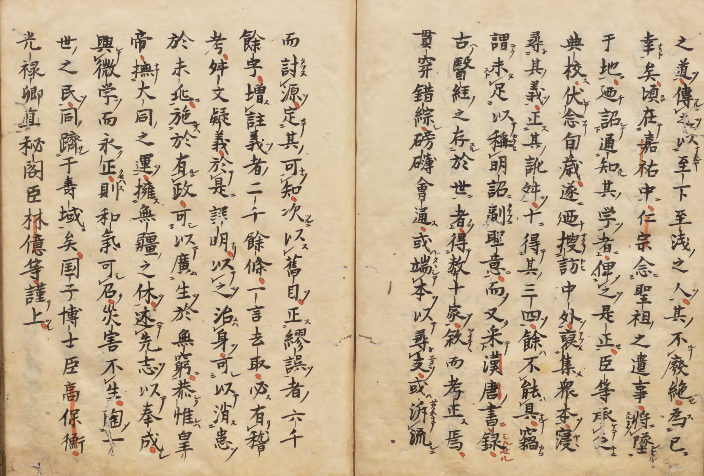 之道傳之以至下至浅之人其不廢絕為已
幸矣頃在嘉祐中仁宗念聖祖之遺事将墜
于地迺詔通知其学者俾之是正臣等承乏
典校伏念旬歲遂迺搜訪中外裒集衆本寖
尋其義正其訛舛十得其三四餘不能具竊
謂未足以稱明詔副聖意而又采漢唐書録
古醫經之存於世者得数十家敘而考正焉
貫穿錯綜磅礴會通或端本以尋支或泝流
而討源定其可知次以舊目正繆誤者六千
餘字増註義者二千餘條一言去取必有稽
考舛文疑義於是詳明以之治身可以消患
於未兆施於有政可以廣生於無窮恭惟皇
帝撫大同之運擁無疆之休述先志以奉成
興微学而永正則和氣可召災害不生陶一
世之民同躋于壽域矣国子博士臣高保衡
光禄卿直秘閣臣林億等謹上